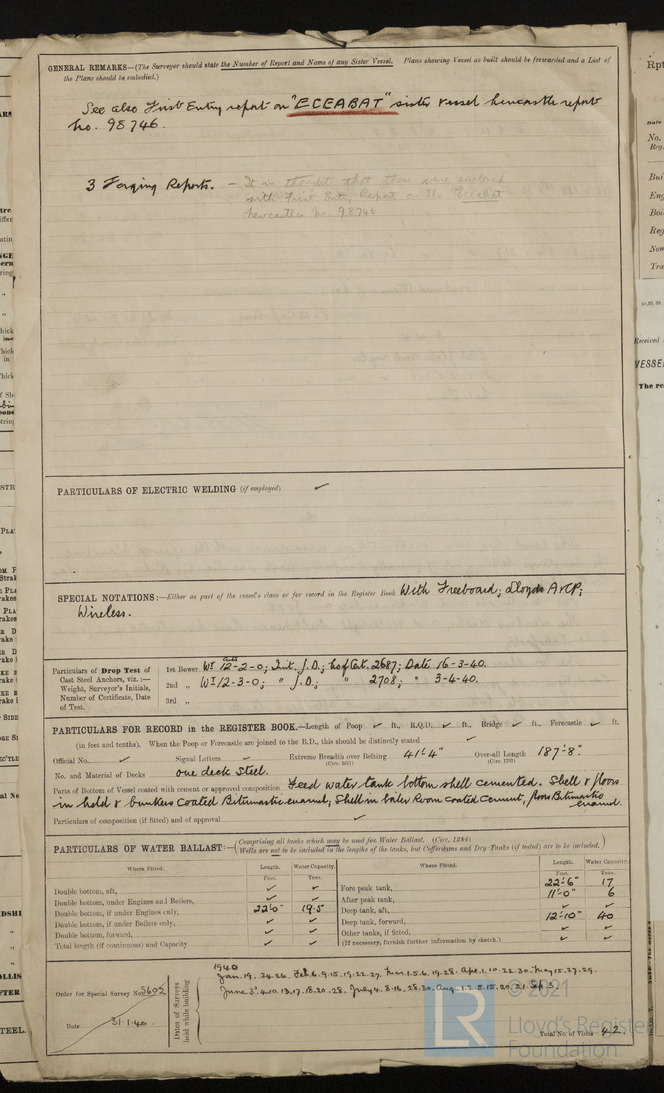 GENERAL REMARKS—(The Surveyor should state the Number of Report and Name of any Sister Vessel. Plans showing Vessel as built should be forwarded and a List of
the Plans should be embodied.)
See also First Entry report on "ECEABAT" sister vessel Newcastle report
No. 98746.
3 Forging Reports. – It is thought that these were enclosed
with First Entry Report on the Eceabat
Newcastle No. 98746
PARTICULARS OF ELECTRIC WELDING (if employed) ✓
SPECIAL NOTATIONS:—Either as part of the vessel's class or for record in the Register Book With Freeboard; Lloyds A&CP;
Wireless.
Particulars of Drop Test of
Cast Steel Anchors, viz.:—
Weight, Surveyor's Initials,
Number of Certificate, Date
of Test.
1st Bower Wt 12-2-0; Init. J.D.; No of Cat. 2687; Date 16-3-40.
2nd „ Wt 12-3-0; " J.D.; " 2708; " 3-4-40.
3rd „
PARTICULARS FOR RECORD in the REGISTER BOOK.—Length of Poop ✓ ft., R.Q.D. ✓ ft., Bridge ✓ ft., Forecastle ✓ ft.
(in feet and tenths). When the Poop or Forecastle are joined to the B.D., this should be distinctly stated ✓
Official No. ✓ Signal Letters ✓ Extreme Breadth over Belting 41'4" Over-all Length 187'-8"
No. and Material of Decks one deck steel.
Parts of Bottom of Vessel coated with cement or approved composition Feed water tank bottom shell cemented. Shell & floors
in hold & bunkers coated Bitumastic enamel, Shell in boiler Room coated Cement, floors Bitumastic
enamel.
Particulars of composition (if fitted) and of approval ✓
PARTICULARS OF WATER BALLAST:—(Comprising all tanks which may be used for Water Ballast. (Circ. 1284)
Wells are not to be included in the lengths of the tanks, but Cofferdams and Dry Tanks (if tested) are to be included.)
Where Fitted. Length. Water Capacity. Where Fitted. Length. Water Capacity.
Feet. Tons. Feet. Tons.
Double bottom, aft, ✓ ✓ Fore peak tank, 22'-6" 17
Double bottom, under Engines and Boilers, ✓ ✓ After peak tank, 11'-0" 6
Double bottom, if under Engines only, 22'0" 19.5 Deep tank, aft, ✓ ✓
Double bottom, if under Boilers only, ✓ ✓ Deep tank, forward, 12'-10" 40
Double bottom, forward, ✓ ✓ Other tanks, if fitted, ✓ ✓
Total length (if continuous) and Capacity ✓ ✓ (If necessary, furnish further information by sketch.) ✓ ✓
Order for Special Survey No. 5602
Date 31.1.40.
Dates of Surveys
held while building
1940
Jan. 19. 24. 26. Feb. 6. 9. 15. 19. 22. 27. Mar. 1. 5. 6. 19. 28. Apr. 1. 10. 22. 30. May 15. 27. 29.
June 3. 4. 10. 13. 17. 18. 20. 28. July 4. 8. 16. 28. 30. Aug. 1. 2. 5. 15. 20. 21. Sep. 3.
Total No. of Visits 42.
LR
© 2021
Lloyd's Register
Foundation